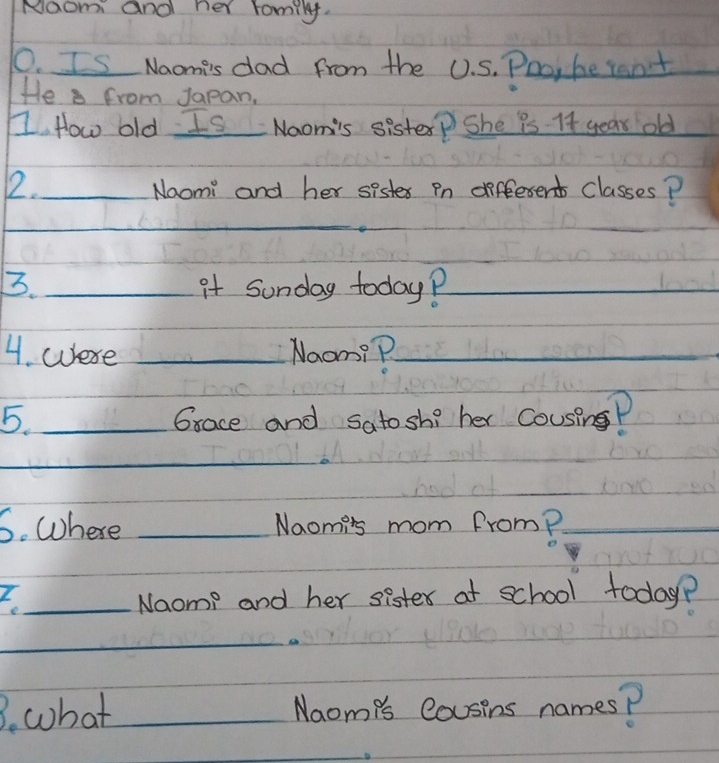 Naomi and her family.
0. IS Naomi's dad from the U.S.? No, he isn't
He's from Japan.
1. How old Is Naomi's sister? She is 17 year old
2. ______ Naomi and her sister in different classes?
3. ______ it Sunday today?
4. Were ______ Naomi?
5. ______ Grace and Satoshi her Cousins?
6. Where ______ Naomi's mom from?
7. ______ Naomi and her sister at school today?
8. What ______ Naomi's cousins names?